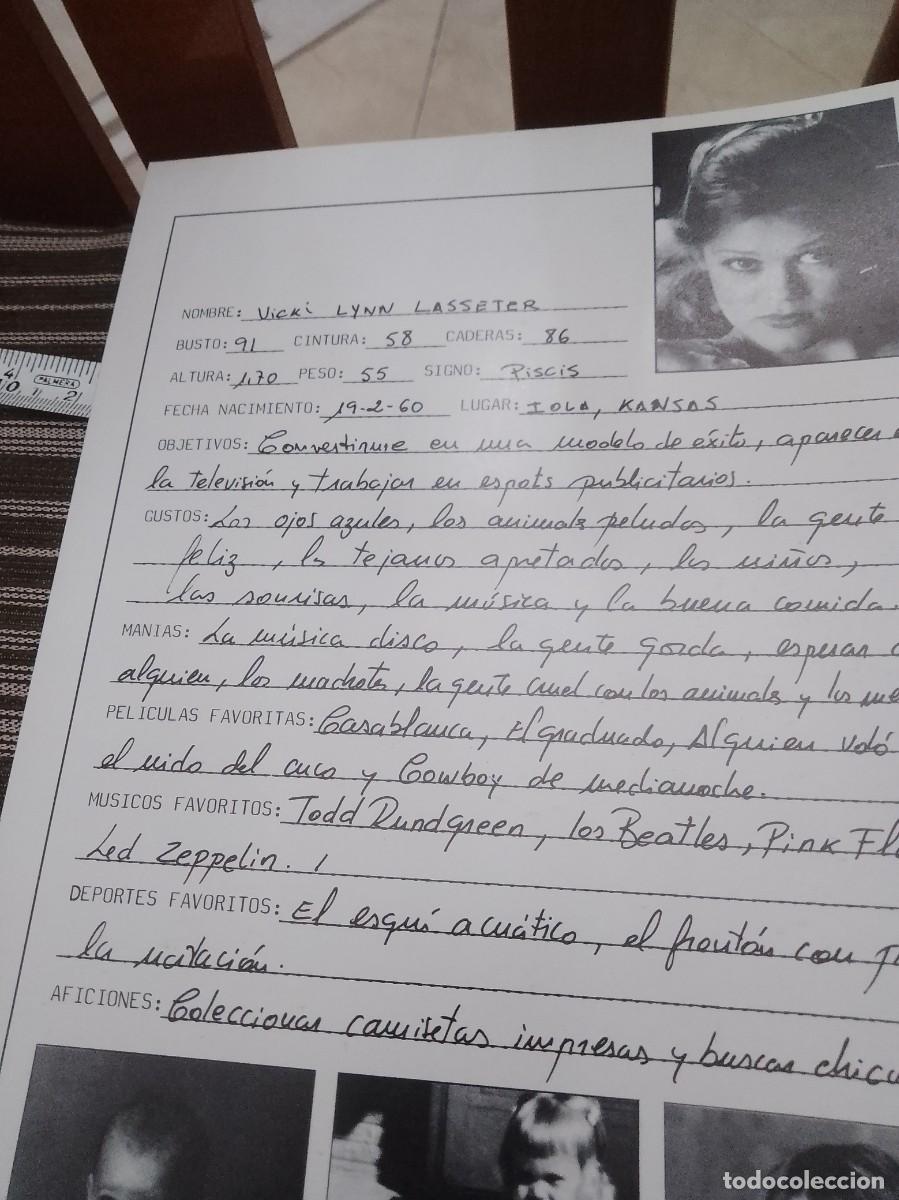 NOMBRE: Vicki LYNN LASSETER
BUSTO: 91 CINTURA: 58 CADERAS: 86
ALTURA: 1,70 PESO: 55 SIGNO: PISCIS
FECHA NACIMIENTO: 19-2-60 LUGAR: IOLA, KANSAS
OBJETIVOS: Convertirme en una modelo de éxito, aparecer
la televisión y trabajar en espots publicitarios.
GUSTOS: Los ojos azules, los animales peludos, la gente
feliz, los tejanos apretados, los niños,
las sonrisas, la música y la buena comida.
MANIAS: La música disco, la gente gorda, esperar a
alguien, los machotes, la gente cruel con los animales y los
PELICULAS FAVORITAS: Casablanca, El graduado, Alguien voló
el nido del cuco y Cowboy de medianoche.
MUSICOS FAVORITOS: Todd Rundgreen, los Beatles, Pink Fl
Led Zeppelin.
DEPORTES FAVORITOS: El esquí acuático, el frontón con
la natación.
AFICIONES: Coleccionar camisetas impresas y buscar chic
4 0 1 2
PALMERA
todocoleccion